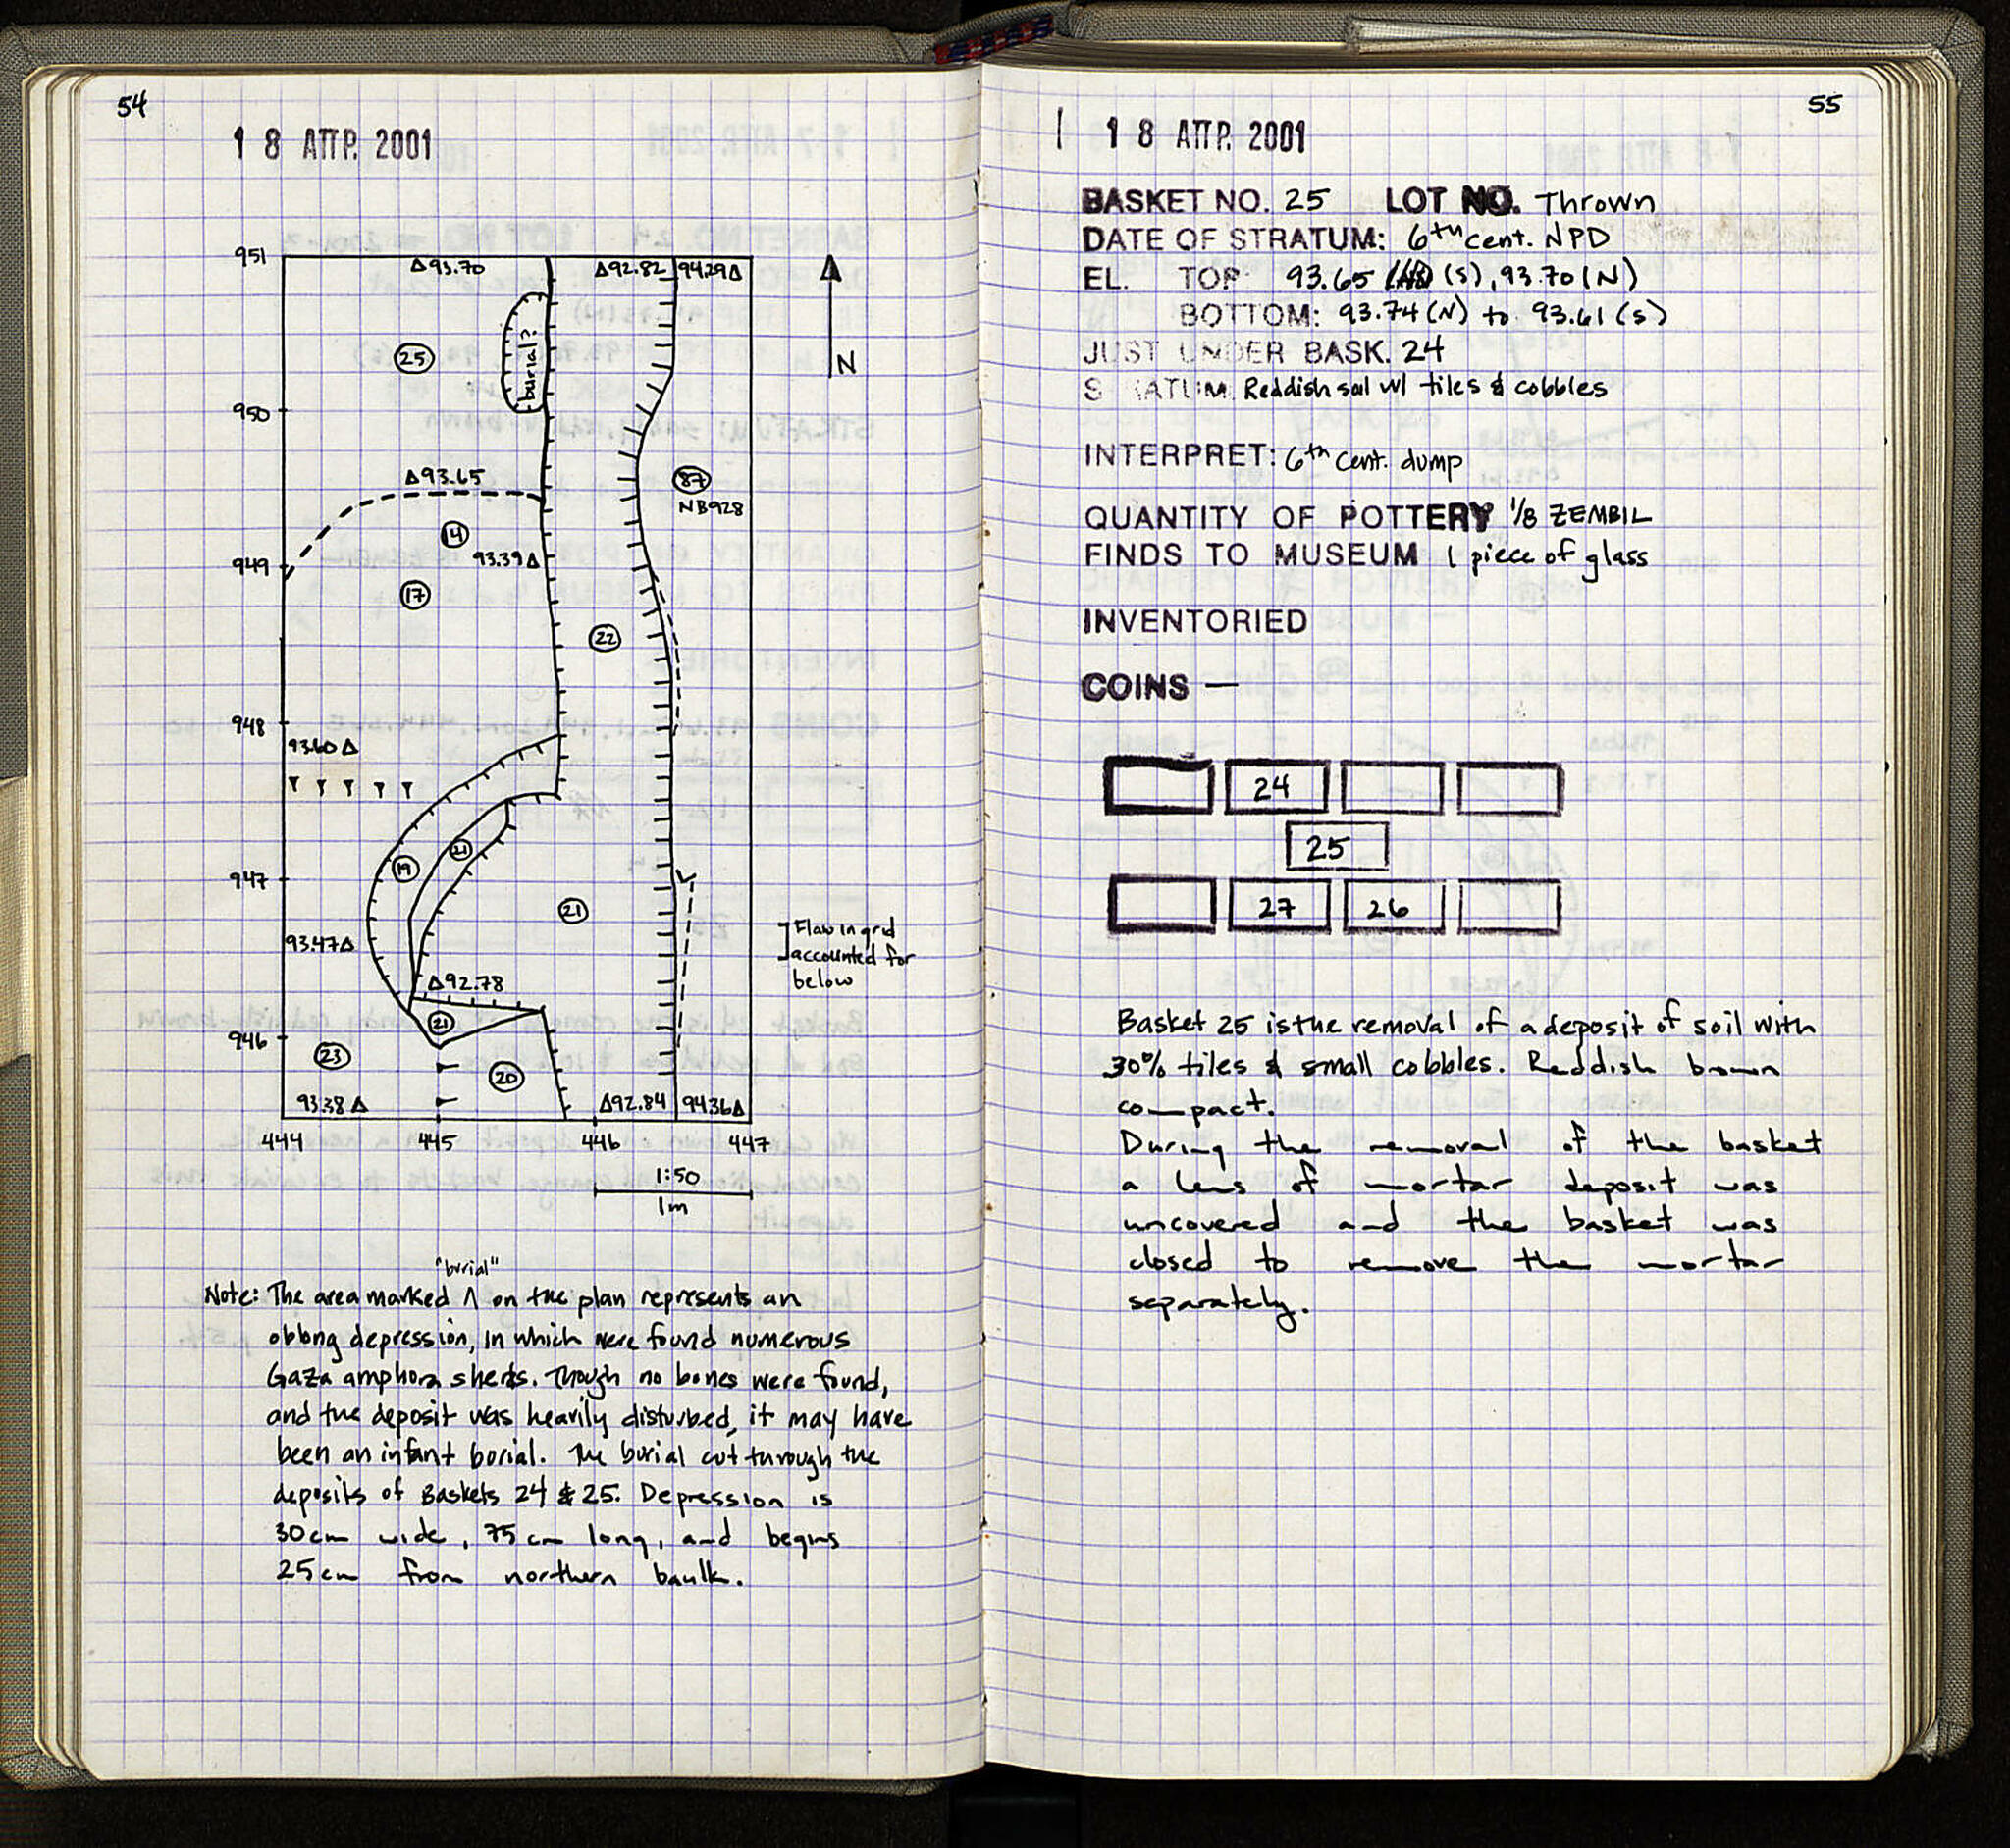 54
1 8 ΑΠΡ. 2001
951
Δ93.70
Δ92.82
94.29Δ
burial?
25
N
950
Δ93.65
87
NB928
14
93.39Δ
949
17
22
948
93.60Δ
21
19
947
21
93.47Δ
Flaw in grid
accounted for
below
Δ92.78
21
946
23
20
93.38Δ
Δ92.84
94.36Δ
444
445
446
447
1:50
1m
"burial"
Note: The area marked ʌ on the plan represents an
oblong depression, in which were found numerous
Gaza amphora sherds. Though no bones were found,
and the deposit was heavily disturbed, it may have
been an infant burial. The burial cut through the
deposits of Baskets 24 & 25. Depression is
30cm wide, 75cm long, and begins
25cm from northern baulk.
55
1 8 ΑΠΡ. 2001
BASKET NO. 25 LOT NO. Thrown
DATE OF STRATUM: 6th cent. NPD
EL. TOP 93.65 (S), 93.70 (N)
BOTTOM: 93.74 (N) to 93.61 (S)
JUST UNDER BASK. 24
STRATUM Reddish soil w/ tiles & cobbles
INTERPRET: 6th cent. dump
QUANTITY OF POTTERY 1/8 ZEMBIL
FINDS TO MUSEUM 1 piece of glass
INVENTORIED
COINS —
24
25
27 26
Basket 25 is the removal of a deposit of soil with
30% tiles & small cobbles. Reddish brown
compact.
During the removal of the basket
a lens of mortar deposit was
uncovered and the basket was
closed to remove the mortar
separately.